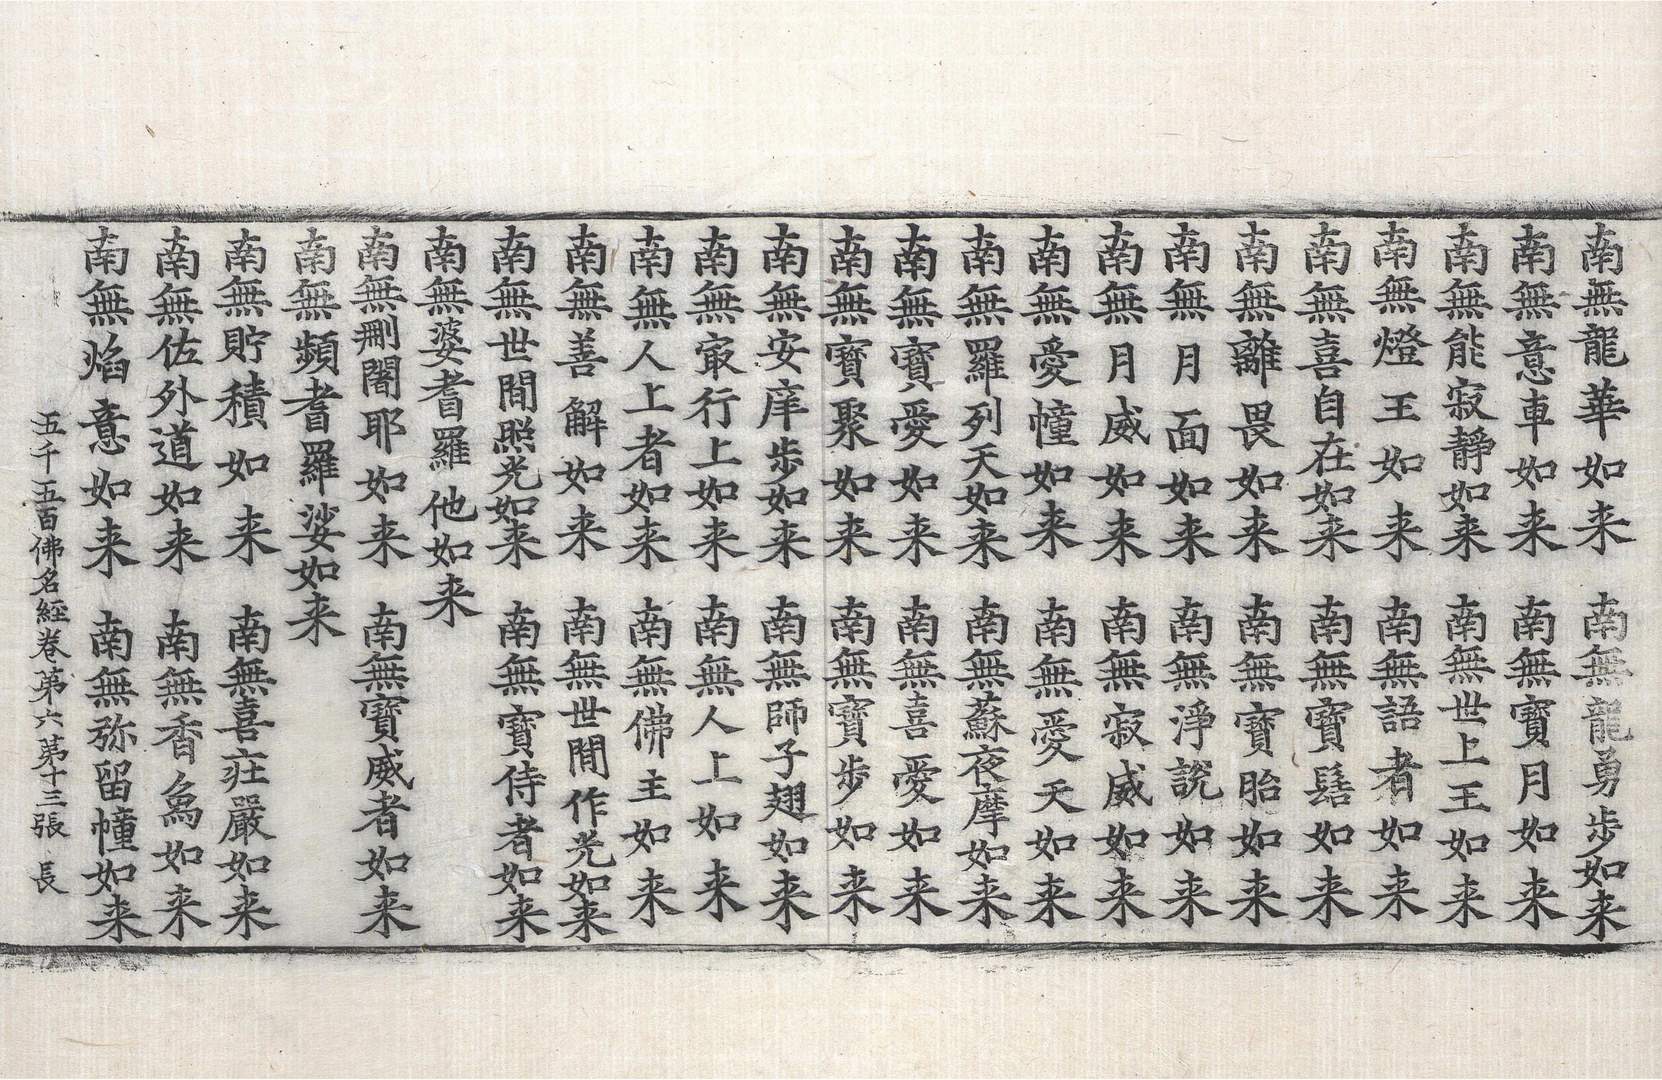 南無龍華如来 南無龍勇歩如来
南無意車如来 南無寶月如来
南無能寂靜如来 南無世上王如来
南無燈王如来 南無語者如来
南無喜自在如来 南無寶髻如来
南無離畏如来 南無寶胎如来
南無月面如来 南無淨說如来
南無月威如来 南無寂威如来
南無愛幢如来 南無愛天如来
南無羅列天如来 南無蘇夜摩如来
南無寶愛如来 南無喜愛如来
南無寶聚如来 南無寶步如来
南無安庠步如来 南無師子翅如来
南無冣行上如来 南無人上如来
南無人上者如来 南無佛主如来
南無善解如来 南無世間作光如来
南無世間照光如来 南無寶侍者如来
南無婆耆羅他如来
南無刪闍耶如来 南無寶威者如来
南無頻耆羅娑如来
南無貯積如来 南無喜莊嚴如来
南無佐外道如来 南無香為如来
南無焰意如来 南無弥留幢如来
五千五百佛名經卷第六 第十三張 長